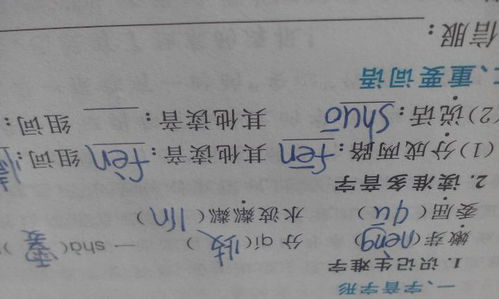 一、字音字形
1. 识记生难字
嫩芽(neng) 分qí(歧) 一shà(霎)
委屈(qū) 水波粼粼(lín)
2. 读准多音字
(1)分成两路:fēn 其他读音:fèn 组词:
(2)说话:shuō 其他读音: 组词:
二、重要词语
信服: